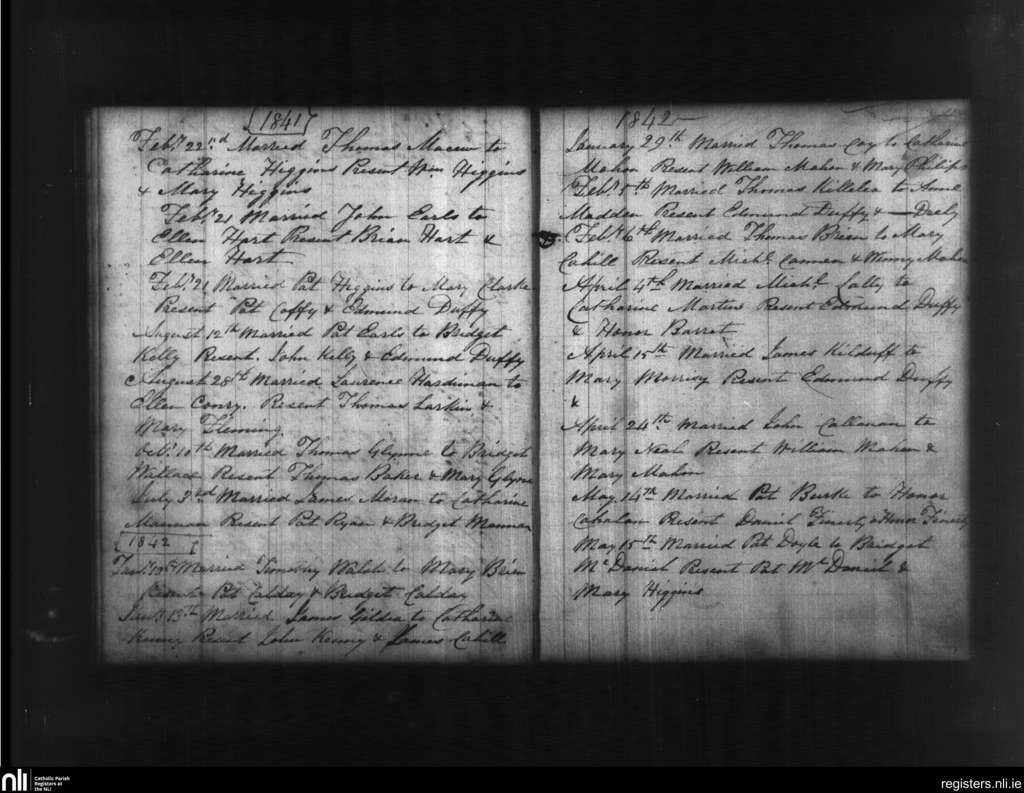 1841
Feby 22nd Married Thomas Macew to
Catharine Higgins Present Wm Higgins
& Mary Higgins
Feby 21 Married John Earls to
Ellen Hart Present Brian Hart &
Ellen Hart
Feby 21 Married Pat Higgins to Mary Clarke
Present Pat Coffy & Edmund Duffy
August 12th Married Pat Earls to Bridget
Kelly Present. John Kelly & Edmund Duffy
August 28th Married Laurence Hardiman to
Ellen Conry. Present Thomas Larkin &
Mary Fleming
Oct. 10th Married Thomas Glynne to Bridget
Wallace Present Thomas Baker & Mary Glynne
July 3rd Married James Moran to Catharine
Mannan Present Pat Ryan & Bridget Mannan
1842
Jany 13th Married Timothy Walsh to Mary Brien
Pat Calday & Bridget Calday
Jany 13th Married James Gildea to Catharine
Kenny Present John Kenny & James Cahill
1842
January 29th Married Thomas Coy to Catharine
Mahon Present William Mahon & Mary Philips
Feby 5th Married Thomas Killelea to Anne
Madden Present Edmund Duffy & — Deely
Feby 6th Married Thomas Brien to Mary
Cahill Present Michl Cannan & Winny Mahon
April 4th Married Michl Lally to
Catharine Martin Present Edmund Duffy
& Honor Barret
April 15th Married James Kilduff to
Mary Morrisy Present Edmund Duffy
&
April 24th Married John Callanan to
Mary Neal Present William Mahon &
Mary Mahon
May 14th Married Pat Burke to Honor
Cahalan Present Daniel Finerty & Honor Finerty
May 15th Married Pat Doyle to Bridget
McDaniel Present Pat McDaniel &
Mary Higgins
nli
Catholic Parish
Registers at
the NLI
registers.nli.ie